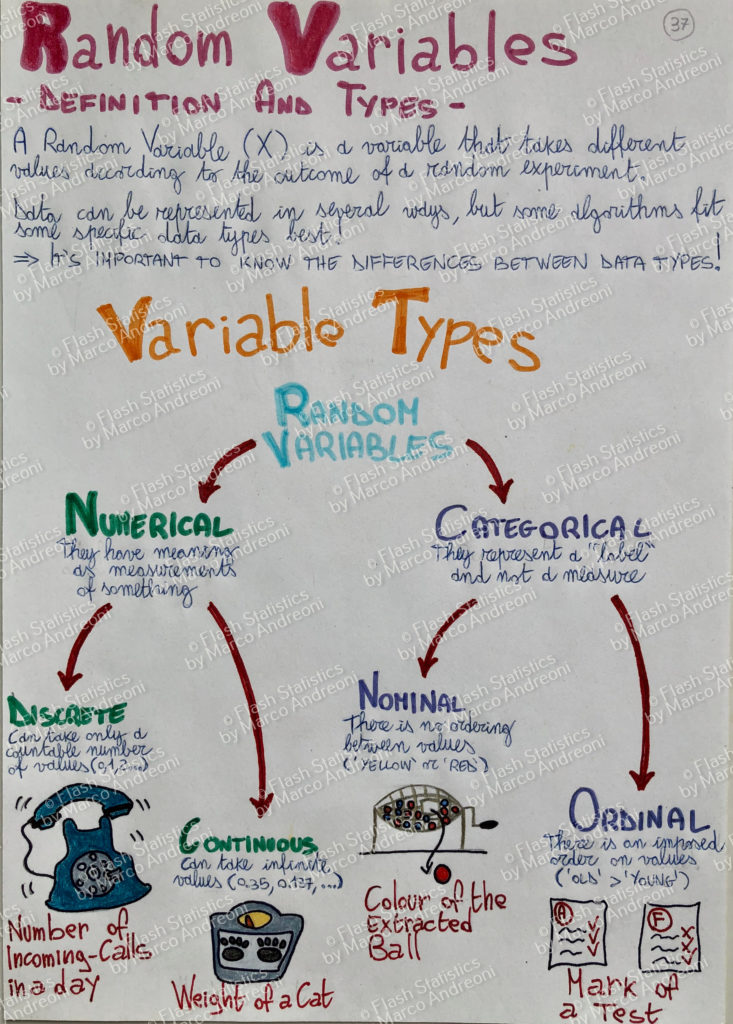 Random Variables
37
- DEFINITION AND TYPES -
A Random Variable (X) is a variable that takes different
values according to the outcome of a random experiment.
Data can be represented in several ways, but some algorithms fit
some specific data types best!
⇒ It's IMPORTANT TO KNOW THE DIFFERENCES BETWEEN DATA TYPES!
Variable Types
RANDOM
VARIABLES
NUMERICAL
They have meaning
as measurements
of something
CATEGORICAL
They represent a "label"
and not a measure
DISCRETE
Can take only a
countable number
of values (0,1,2...)
NOMINAL
There is no ordering
between values
('YELLOW' or 'RED')
CONTINUOUS
Can take infinite
values (0.35, 0.137, ...)
ORDINAL
There is an imposed
order on values
('OLD' > 'YOUNG')
Number of
Incoming-Calls
in a day
Weight of a Cat
Colour of the
Extracted
Ball
A
F
Mark of
a Test
© Flash Statistics
by Marco Andreoni